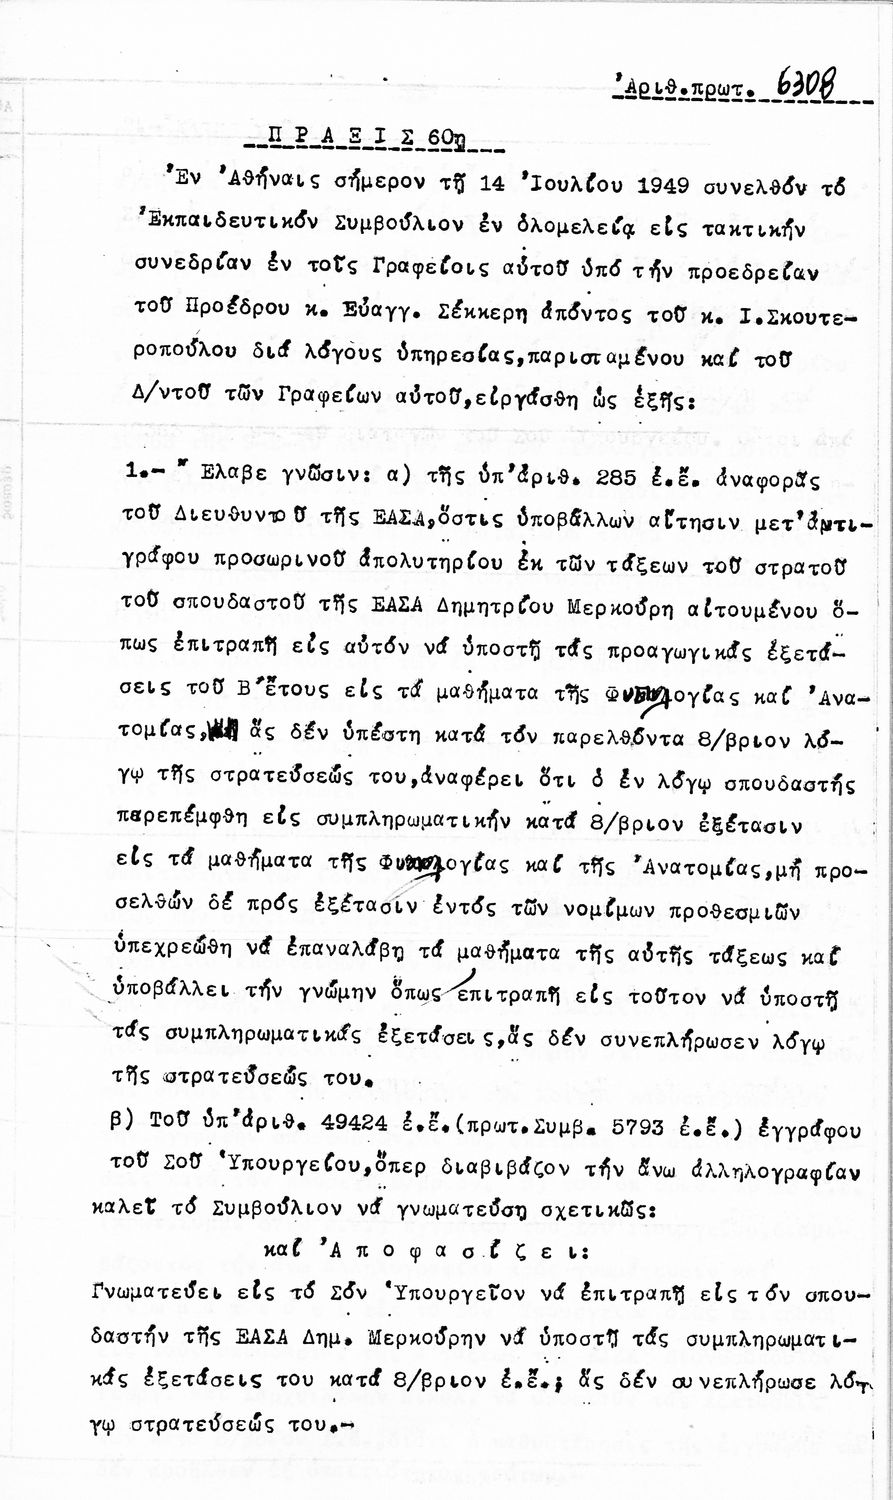 Ἀριθ.πρωτ. 6308
Π Ρ Α Ξ Ι Σ 60η
Ἐν Ἀθήναις σήμερον τῇ 14 Ἰουλίου 1949 συνελθόν τό
Ἐκπαιδευτικόν Συμβούλιον ἐν ὁλομελείᾳ εἰς τακτικήν
συνεδρίαν ἐν τοῖς Γραφείοις αὐτοῦ ὑπό τήν προεδρείαν
τοῦ Προέδρου κ. Εὐαγγ. Σέκκερη ἀπόντος τοῦ κ. Ι.Σκουτε-
ροπούλου διά λόγους ὑπηρεσίας,παρισταμένου καί τοῦ
Δ/ντοῦ τῶν Γραφείων αὐτοῦ,εἰργάσθη ὡς ἑξῆς:
1.- Ἔλαβε γνῶσιν: α) τῆς ὑπ'ἀριθ. 285 ἐ.ἔ. ἀναφορᾶς
τοῦ Διευθυντοῦ τῆς ΕΑΣΑ,ὅστις ὑποβάλλων αἴτησιν μετ'ἀντι-
γράφου προσωρινοῦ ἀπολυτηρίου ἐκ τῶν τάξεων τοῦ στρατοῦ
τοῦ σπουδαστοῦ τῆς ΕΑΣΑ Δημητρίου Μερκούρη αἰτουμένου ὅ-
πως ἐπιτραπῇ εἰς αὐτόν νά ὑποστῇ τάς προαγωγικάς ἐξετά-
σεις τοῦ Β'ἔτους εἰς τά μαθήματα τῆς καί Ἀνα-
τομίας, ἅς δέν ὑπέστη κατά τόν παρελθόντα 8/βριον λό-
γῳ τῆς στρατεύσεώς του,ἀναφέρει ὅτι ὁ ἐν λόγῳ σπουδαστής
παρεπέμφθη εἰς συμπληρωματικήν κατά 8/βριον ἐξέτασιν
εἰς τά μαθήματα τῆς καί τῆς Ἀνατομίας,μή προ-
σελθών δέ πρός ἐξέτασιν ἐντός τῶν νομίμων προθεσμιῶν
ὑπεχρεώθη νά ἐπαναλάβῃ τά μαθήματα τῆς αὐτῆς τάξεως καί
ὑποβάλλει τήν γνώμην ὅπως ἐπιτραπῇ εἰς τοῦτον νά ὑποστῇ
τάς συμπληρωματικάς ἐξετάσεις,ἅς δέν συνεπλήρωσεν λόγῳ
τῆς στρατεύσεώς του.
β) Τοῦ ὑπ'ἀριθ. 49424 ἐ.ἔ.(πρωτ.Συμβ. 5793 ἐ.ἔ.) ἐγγράφου
τοῦ Σοῦ Ὑπουργείου,ὅπερ διαβιβάζον τήν ἄνω ἀλληλογραφίαν
καλεῖ τό Συμβούλιον νά γνωματεύσῃ σχετικῶς:
καί Ἀ π ο φ α σ ί ζ ε ι:
Γνωματεύει εἰς τό Σόν Ὑπουργεῖον νά ἐπιτραπῇ εἰς τόν σπου-
δαστήν τῆς ΕΑΣΑ Δημ. Μερκούρην νά ὑποστῇ τάς συμπληρωματι-
κάς ἐξετάσεις του κατά 8/βριον ἐ.ἔ.; ἅς δέν συνεπλήρωσε λό-
γῳ στρατεύσεώς του.-